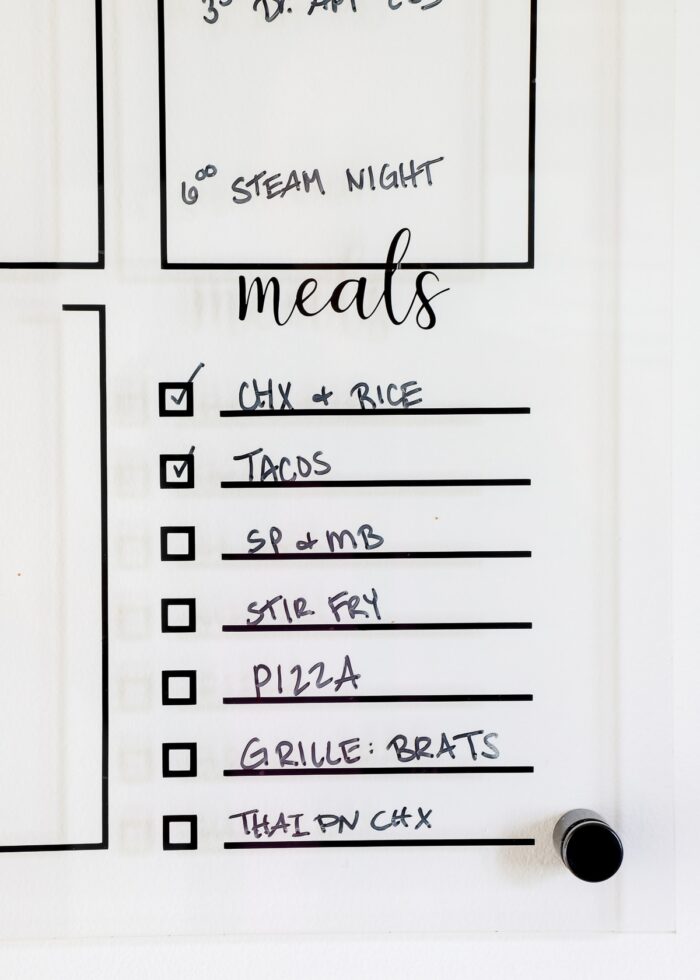 6⁰⁰ STEAM NIGHT
meals
CHX & RICE
TACOS
SP & MB
STIR FRY
PIZZA
GRILLE: BRATS
THAI PN CHX